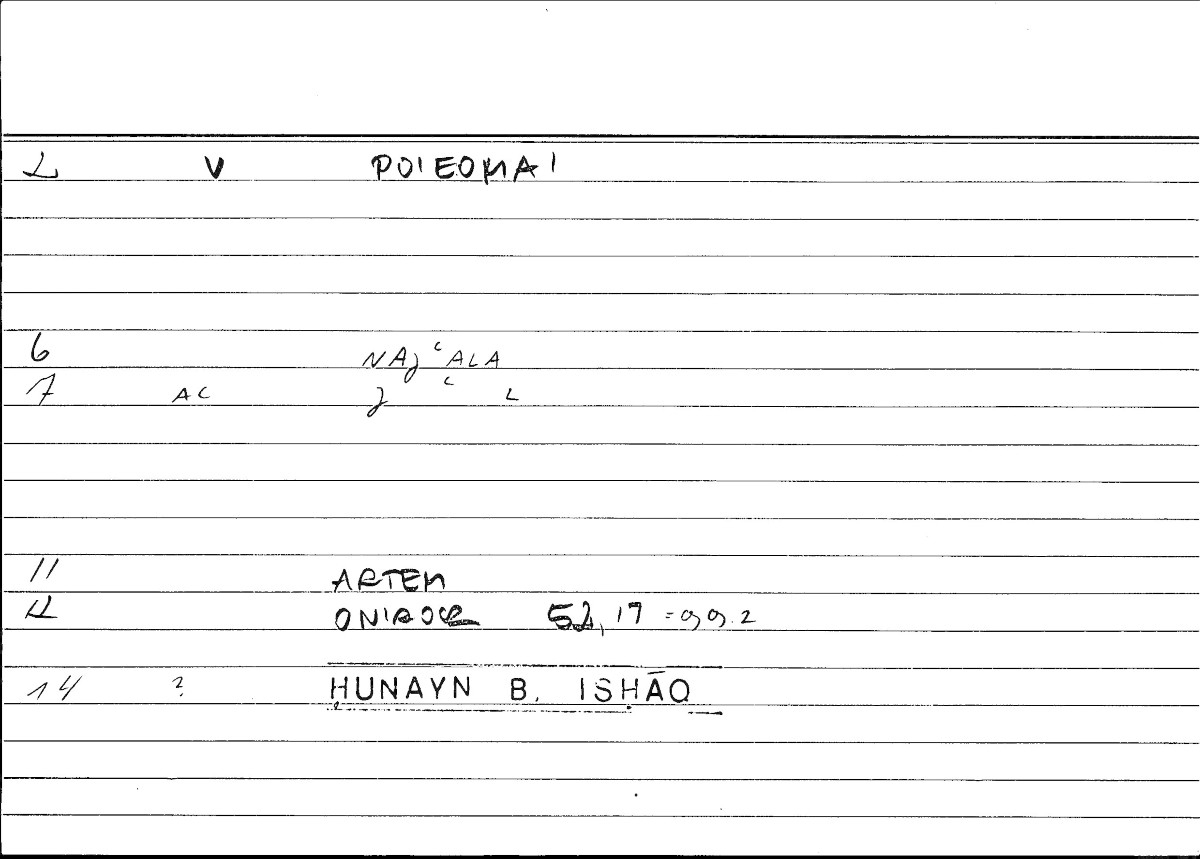 2 V POIEOMAI
6 NAJ ʿALA
7 AC J ʿ L
11 ARTEM
12 ONIROCR 52,17 = 99.2
14 ? ḤUNAYN B. ISḤĀQ